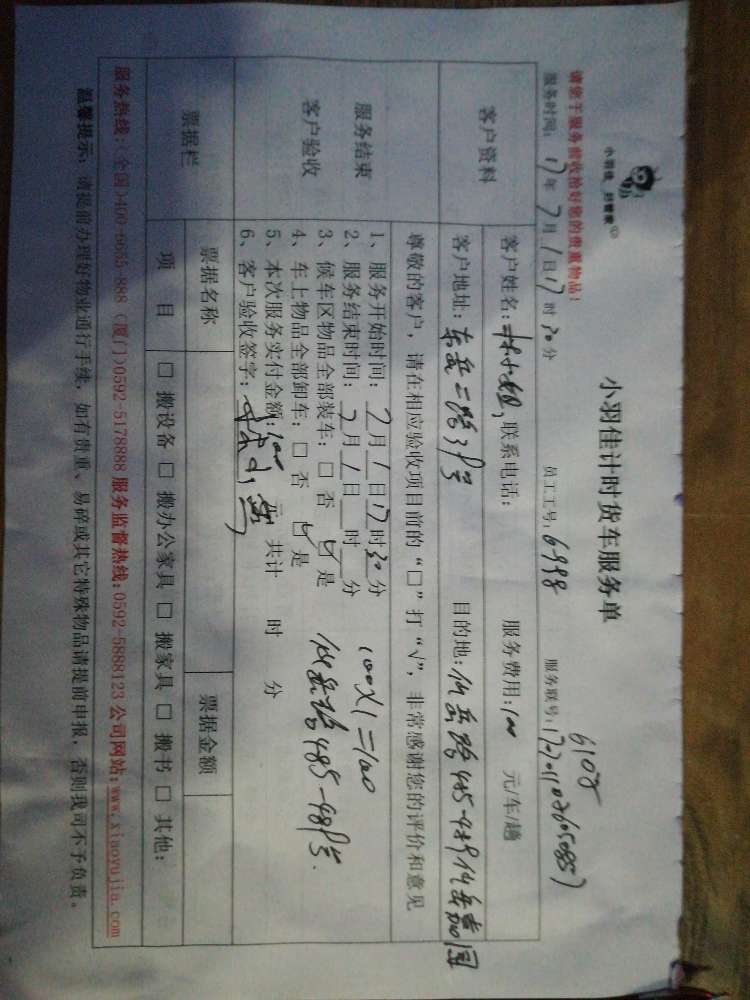 小羽佳 好管家
小羽佳计时货车服务单
请您于服务前收拾好您的贵重物品!
6108
服务时间: 17年7月1日17时30分 员工工号: 6998 服务联号:
客户资料
客户姓名: 林小姐, 联系电话: 服务费用: 100 元/车/趟
客户地址: 东岳二路 号 目的地: 仙岳路485-489仙岳嘉园
尊敬的客户,请在相应验收项目前的“□”打“√”,非常感谢您的评价和意见
服务结束
客户验收
1、服务开始时间: 7月1日17时30分
2、服务结束时间: 7月1日 时 分
3、候车区物品全部装车: □ 否 ☑ 是
4、车上物品全部卸车: □ 否 ☑ 是
5、本次服务实付金额: 100 元 共计 时 分
6、客户验收签字:
100X1=100
仙岳路485-489号.
票据栏
票据名称 票据金额
项 目 □ 搬设备 □ 搬办公家具 □ 搬家具 □ 搬书 □ 其他:
服务热线:(全国)400-6655-888 (厦门)0592-5178888 服务监督热线:0592-5888123 公司网站:www.xiaoyujia.com
温馨提示: 请提前办理好物业通行手续,如有贵重、易碎或其它特殊物品请提前申报,否则我司不予负责。